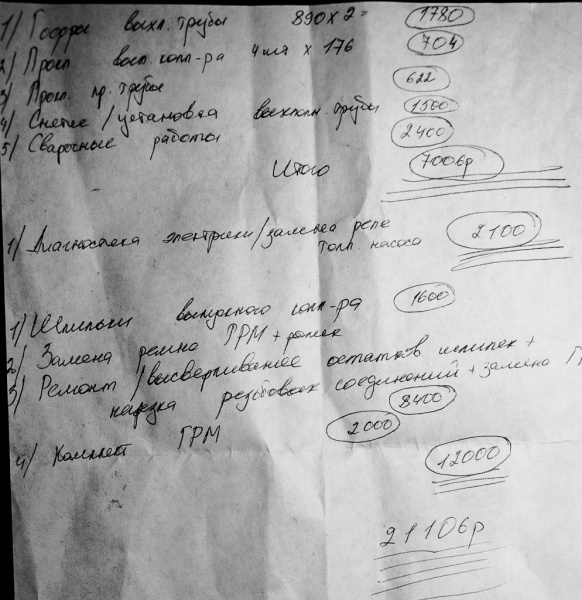 1/ Гофры выхл. трубы 890 x 2 = 1780
2/ Прокл вып. колл-ра 4 шт x 176 704
3/ Прокл. пр. трубы 622
4/ Снятие/установка выхлопн. трубы 1500
5/ Сварочные работы 2400
Итого 7006р
1/ Диагностика электрики/замена реле
топл. насоса 2100
1/ Шпильки выпускного колл-ра 1600
2/ Замена ремня ГРМ + ролик
3/ Ремонт/высверливание остатков шпилек +
нарезка резьбовых соединений + замена Г
8400
4/ Комплект ГРМ 2000
12000
21106р